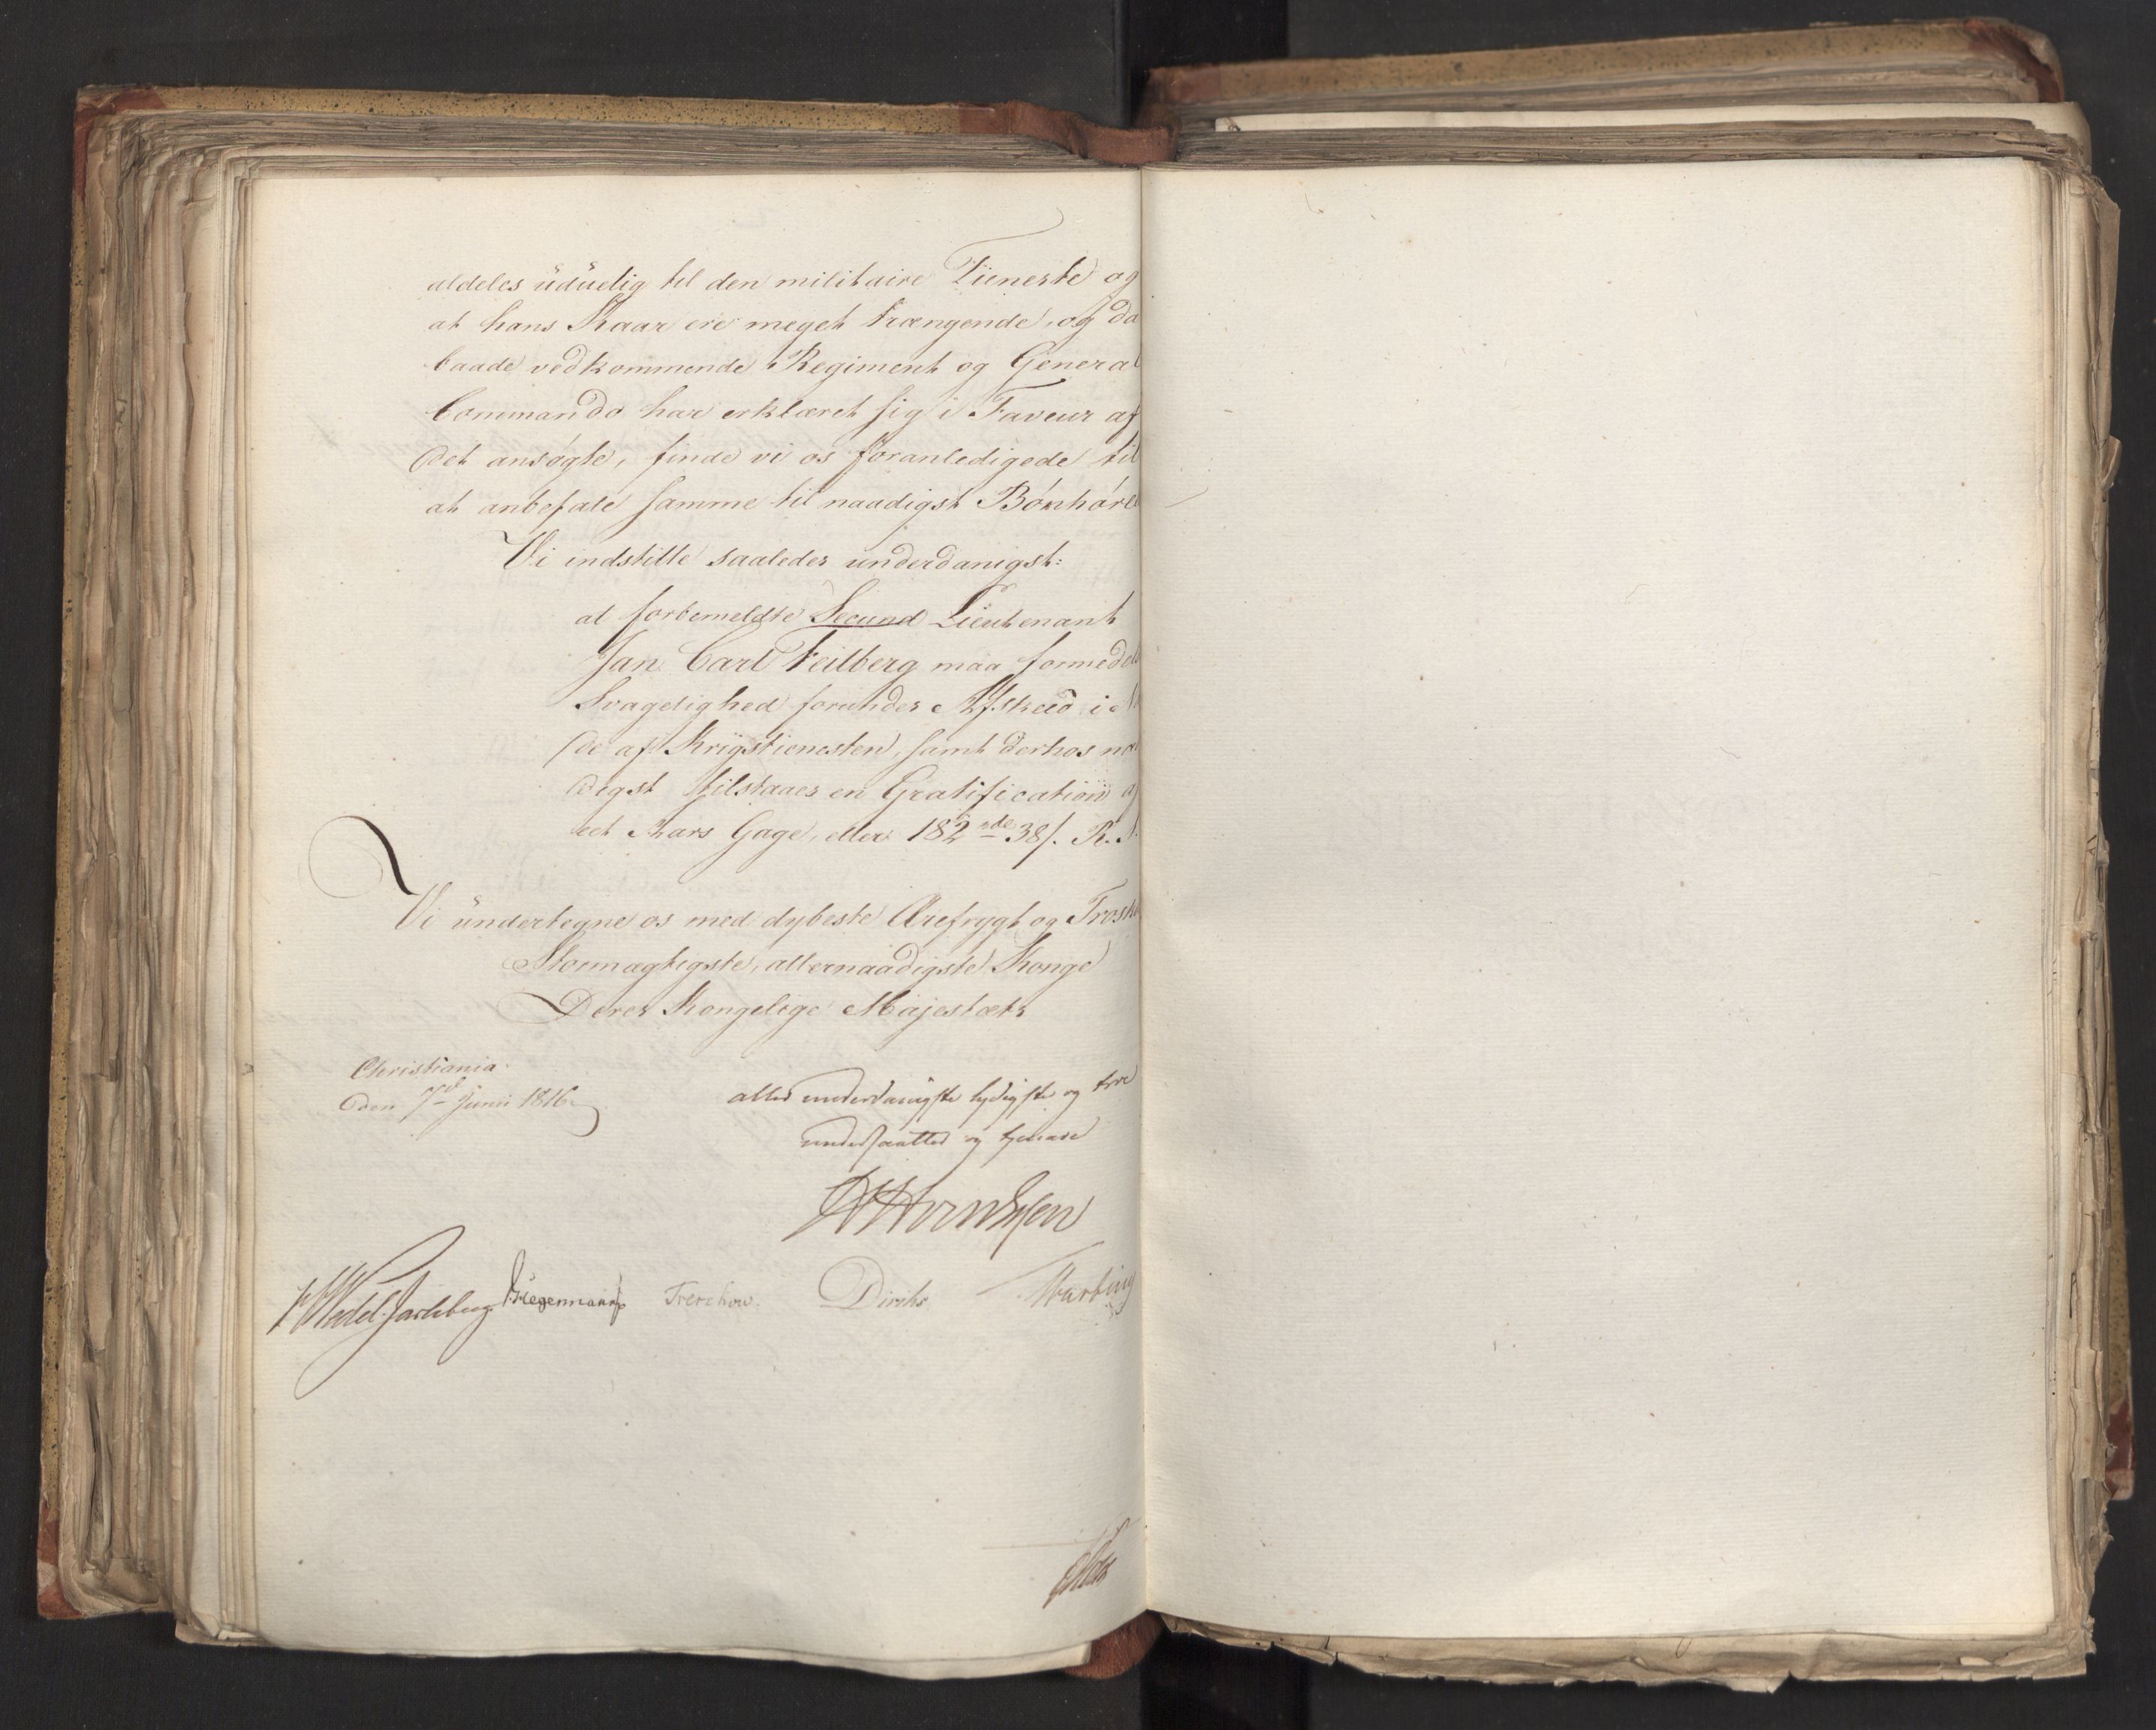 aldeles uduelig til den militaire Tieneste og
at hans Kaar ere meget trængende, og da
baade vedkommende Regiment og General
Commando har erklæret sig i Faveur af
det ansøgte, finde vi os foranledigede til
at anbefale samme til naadigst Bønhøre
Vi indstille saaledes underdanigst:
at forbemeldte Second Lieutenant
Jan Carl Feilberg maa formedel
Svagelighed forundes Afskeed i
de af Krigstienesten, samt derhos na
digst tilstaaes en Gratification a
eet Aars Gage, eller 182 rdr 38 s. R. S.
Vi undertegne os med dybeste Ærefrygt og Trosk
Stormægtigste, allernaadigste Konge
Deres Kongelige Majestæts
Christiania
den 7de Junii 1816.
aller underdanigste lydigste og troe
undersaatter og tjenere
Wedel Jarlsberg Hegermann Treschow Diriks